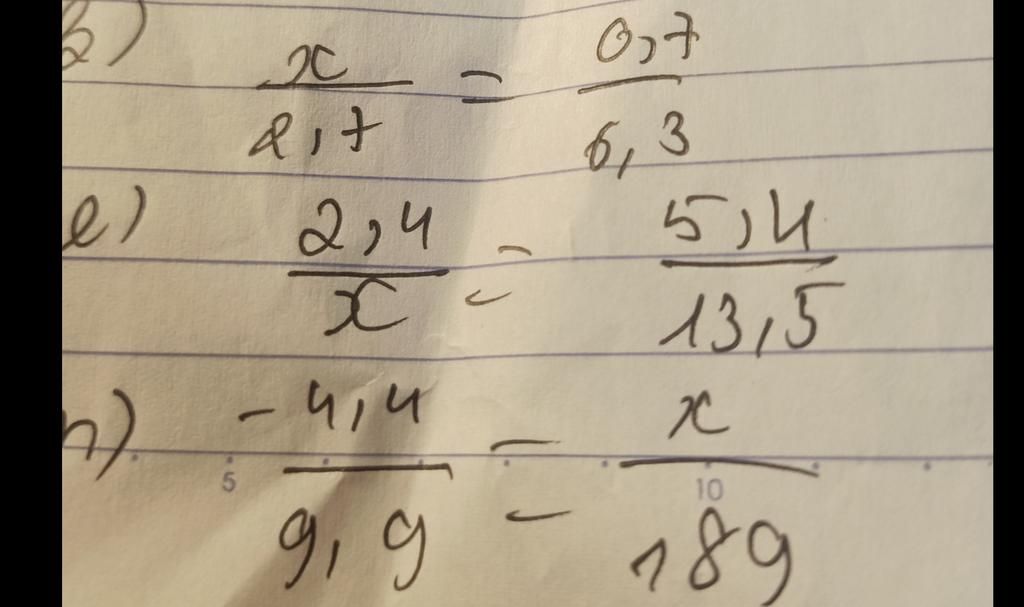 b) x/2,7 = 0,7/6,3
e) 2,4/x = 5,4/13,5
h) -4,4/9,9 = x/189
5 10